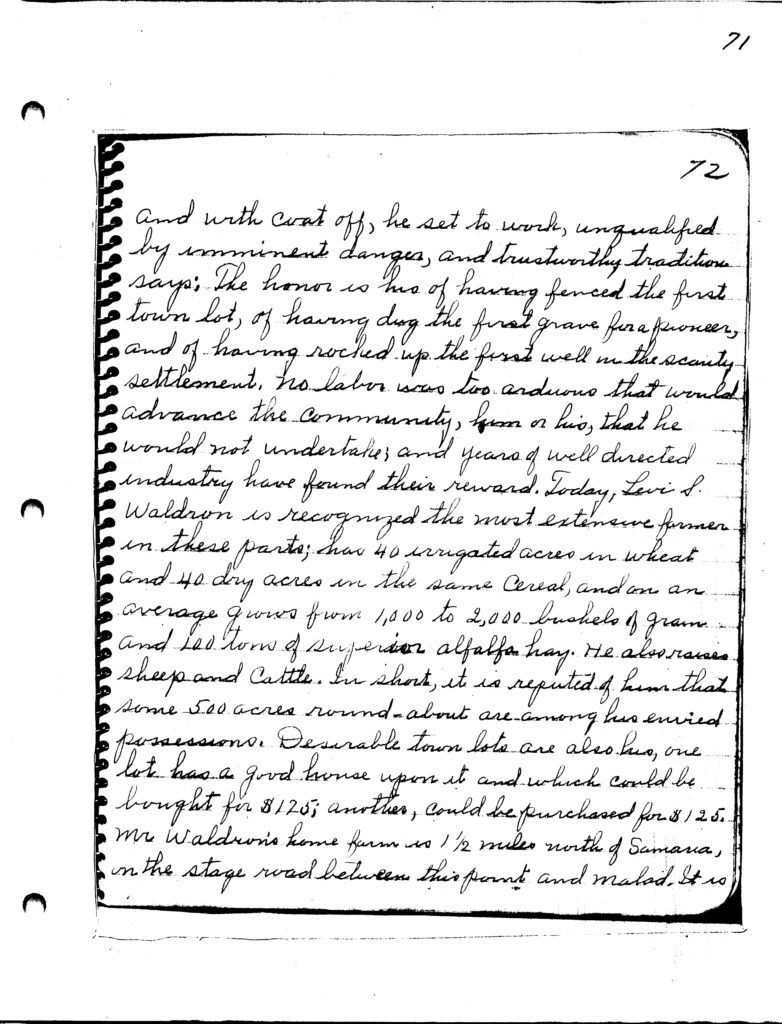 71
72
and with coat off, he set to work, unqualified
by imminent danger, and trustworthy tradition
says: The honor is his of having fenced the first
town lot, of having dug the first grave for a pioneer,
and of having rocked up the first well in the scanty
settlement. No labor was too arduous that would
advance the community, him or his, that he
would not undertake; and years of well directed
industry have found their reward. Today, Levi S.
Waldron is recognized the most extensive farmer
in these parts; has 40 irrigated acres in wheat
and 40 dry acres in the same cereal, and on an
average grows from 1,000 to 2,000 bushels of grain
and 100 tons of superior alfalfa hay. He also raises
sheep and cattle. In short, it is reputed of him that
some 500 acres round-about are among his envied
possessions. Desirable town lots are also his, one
lot has a good house upon it and which could be
bought for $125; another, could be purchased for $125.
Mr Waldron's home farm is 1 1/2 miles north of Samaria,
on the stage road between this point and Malad. It is